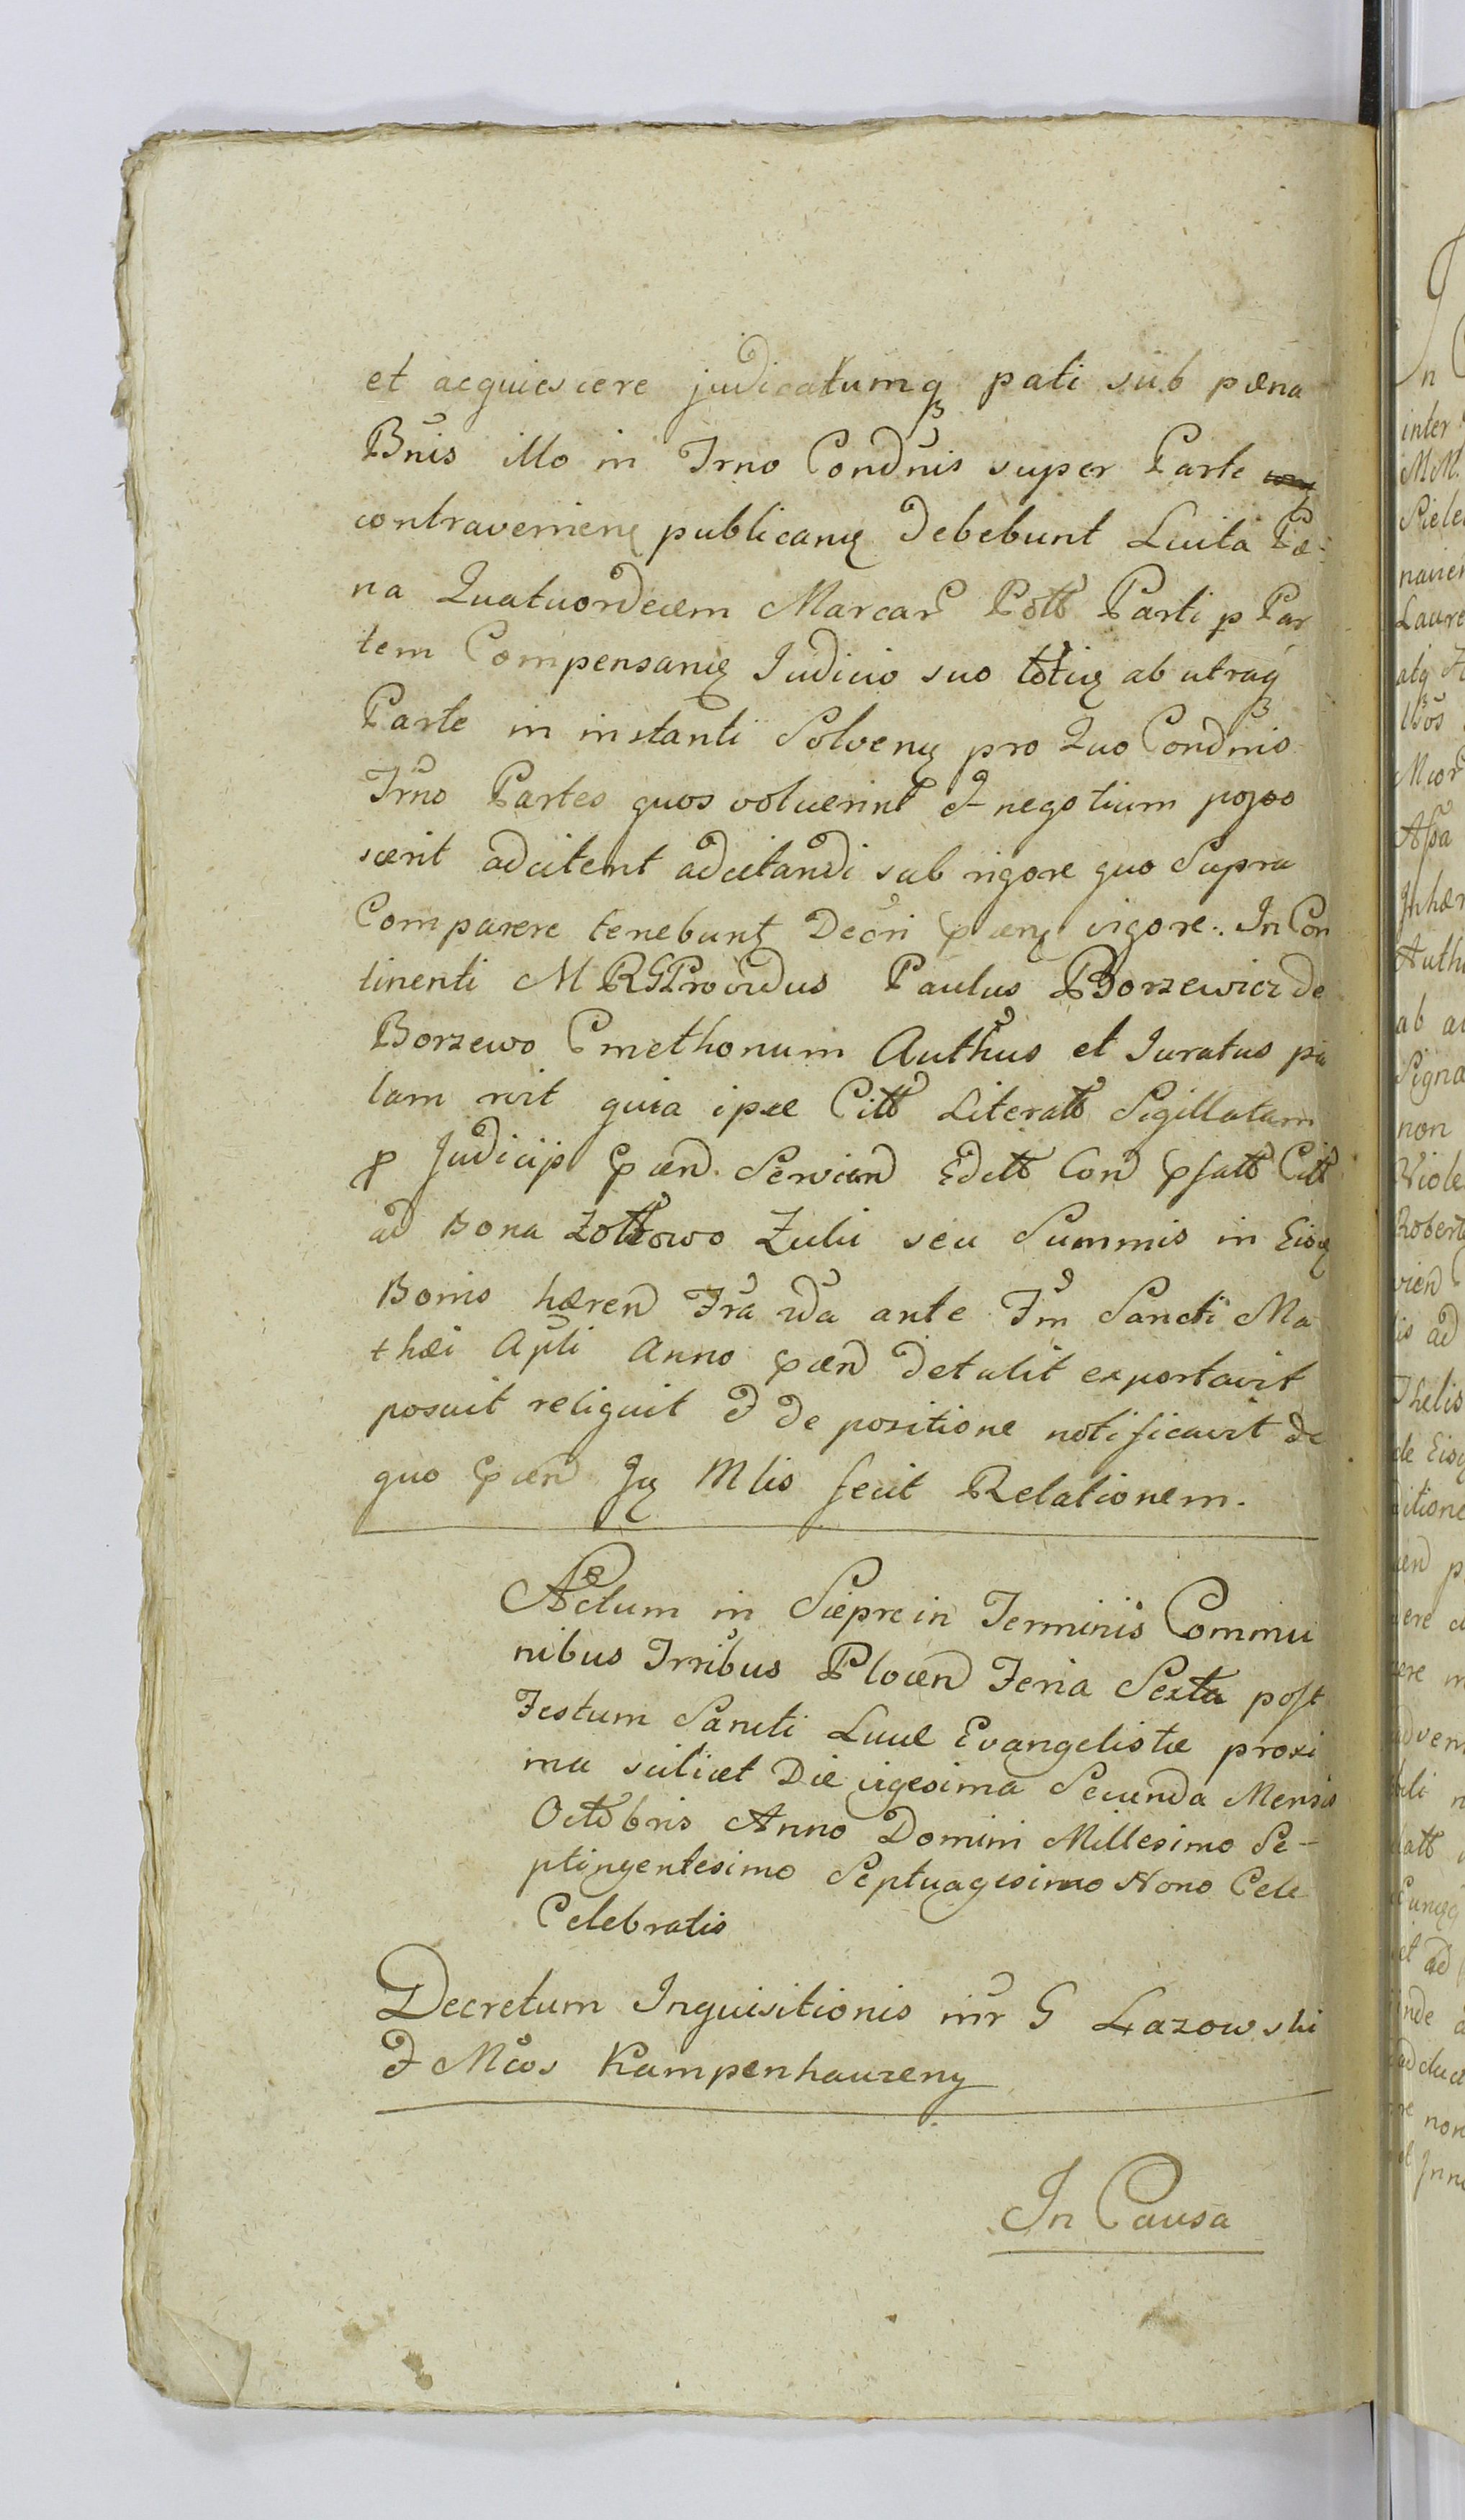 et acquiescere judicatumq pati sub pæna
Bnis illo in Trno Condnis super Parte
contravenienę publicanę debebunt Luita Pæ-
na Quatuordecem Marcar Pott Parti p Par
tem Compensanę Judicio suo totię ab utraq
Parte in instanti Solvenę pro Quo Condnis
Trno Partes quos voluerint & negotium popos
scerit adcitent adcitandi sub rigore quo Supra
Comparere tenebunt Decri præn vigore. In Con
tinenti M R G Providus Paulus Borzewicz de
Borzewo Cmethonum Authus et Juratus pa
lam rvit quia ipse Citt Literatt Sigillatam
p Judicijs præn. Servien Editt Con psatt Citt
ad Bona Zottowo Zulii seu Summis in Eisq
Bonis hæren Fra 2da ante Fm Sancti Ma
thæi Apli Anno præn detulit exportavit
posuit reliquit & de positione notificavit de
quo præn Jų Mlis fecit Relationem.
Actum in Sieprc in Terminis Commu
nibus Trribus Plocen Feria Sexta post
Festum Sancti Lucæ Evangelistæ proxi
ma scilicet Die vigesima Secunda Mensis
Octobris Anno Domini Millesimo Se-
ptingentesimo Septuagesimo Nono Cele
Celebratis
Decretum Inquisitionis intr G Lazowski
& Mcos Kampenhauzeny
In Causa